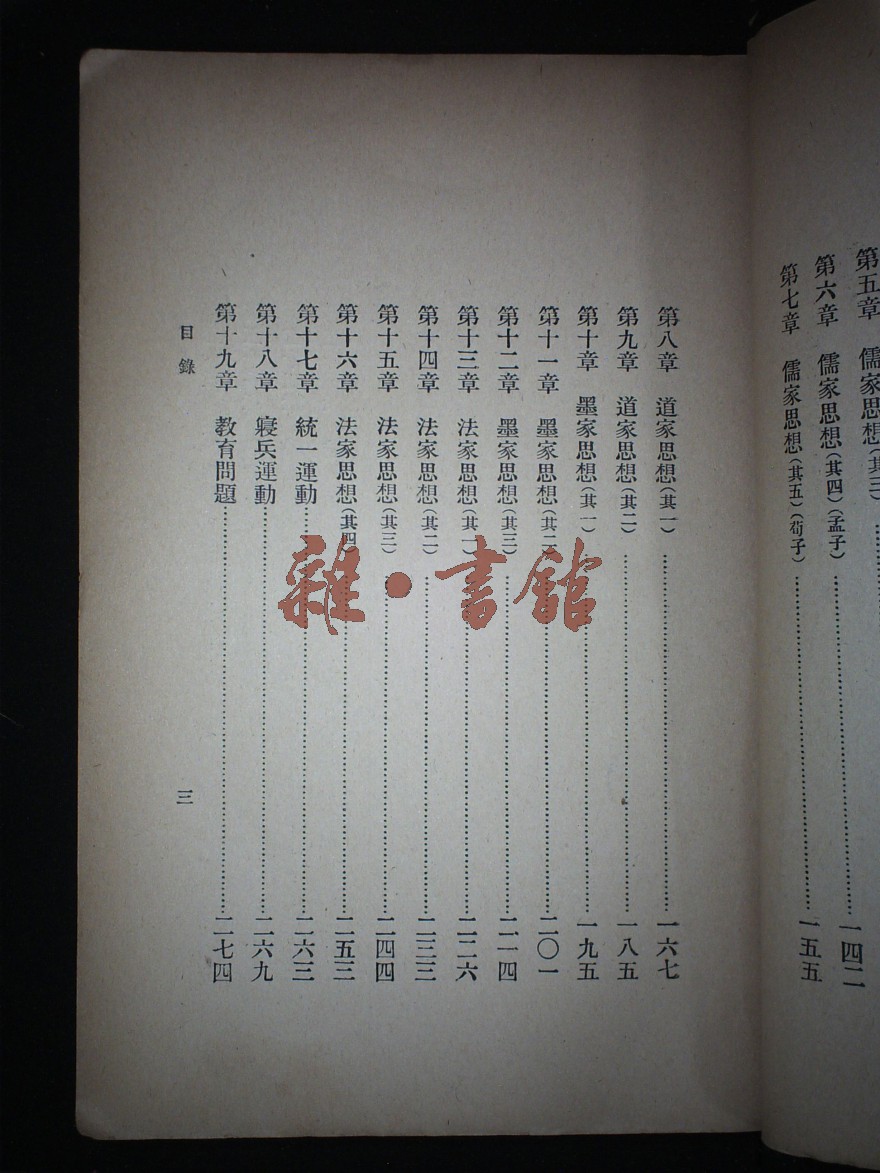 第五章　儒家思想（其三）
第六章　儒家思想（其四）（孟子）……一四二
第七章　儒家思想（其五）（荀子）……一五五
第八章　道家思想（其一）……一六七
第九章　道家思想（其二）……一八五
第十章　墨家思想（其一）……一九五
第十一章　墨家思想（其二）……二〇一
第十二章　墨家思想（其三）……二一四
第十三章　法家思想（其一）……二二六
第十四章　法家思想（其二）……二三三
第十五章　法家思想（其三）……二四四
第十六章　法家思想（其四）……二五三
第十七章　統一運動……二六三
第十八章　寢兵運動……二六九
第十九章　教育問題……二七四
目錄　三
雜・書館